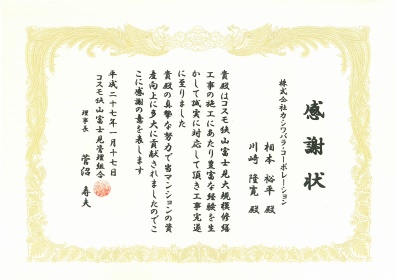 感謝状
株式会社カシワバラ・コーポレーション
相本 裕平 殿
川崎 隆寛 殿
貴殿はコスモ狭山富士見大規模修繕
工事の施工にあたり豊富な経験を生
かして誠実に対応して頂き工事完遂
に至りました
貴殿の真摯な努力で当マンションの資
産向上に多大に貢献されましたのでこ
こに感謝の意を表します
平成二十七年一月十七日
コスモ狭山富士見管理組合
理事長 菅沼 寿夫